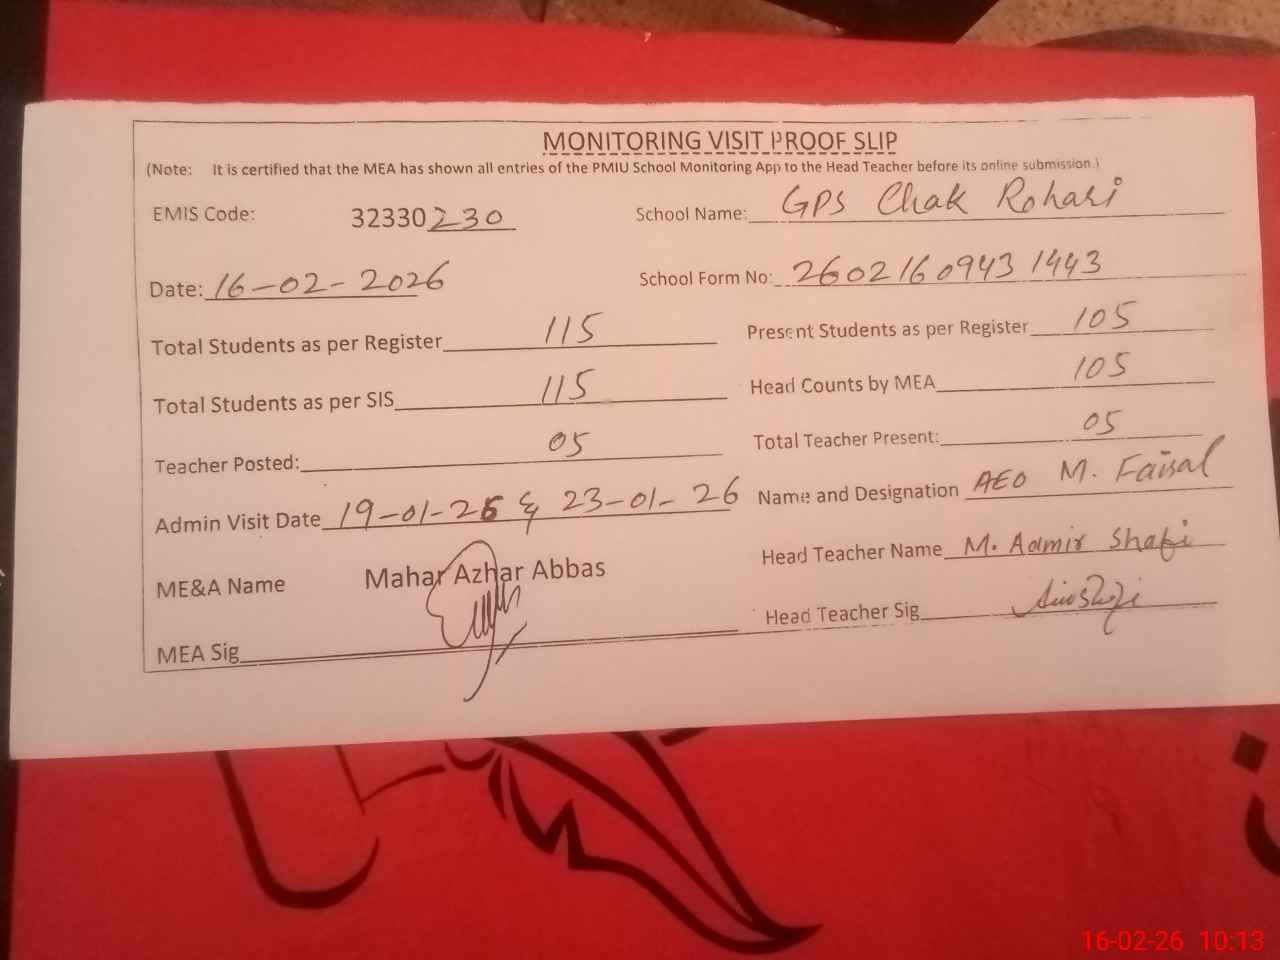 MONITORING VISIT PROOF SLIP
(Note: It is certified that the MEA has shown all entries of the PMIU School Monitoring App to the Head Teacher before its online submission.)
EMIS Code: 32330230 School Name: GPS Chak Rohari
Date: 16-02-2026 School Form No: 26021609431443
Total Students as per Register 115 Present Students as per Register 105
Total Students as per SIS 115 Head Counts by MEA 105
Teacher Posted: 05 Total Teacher Present: 05
Admin Visit Date 19-01-26 & 23-01-26 Name and Designation AEO M. Faisal
ME&A Name Mahar Azhar Abbas Head Teacher Name M. Aamir Shafi
MEA Sig Head Teacher Sig
ن
16-02-26 10:13